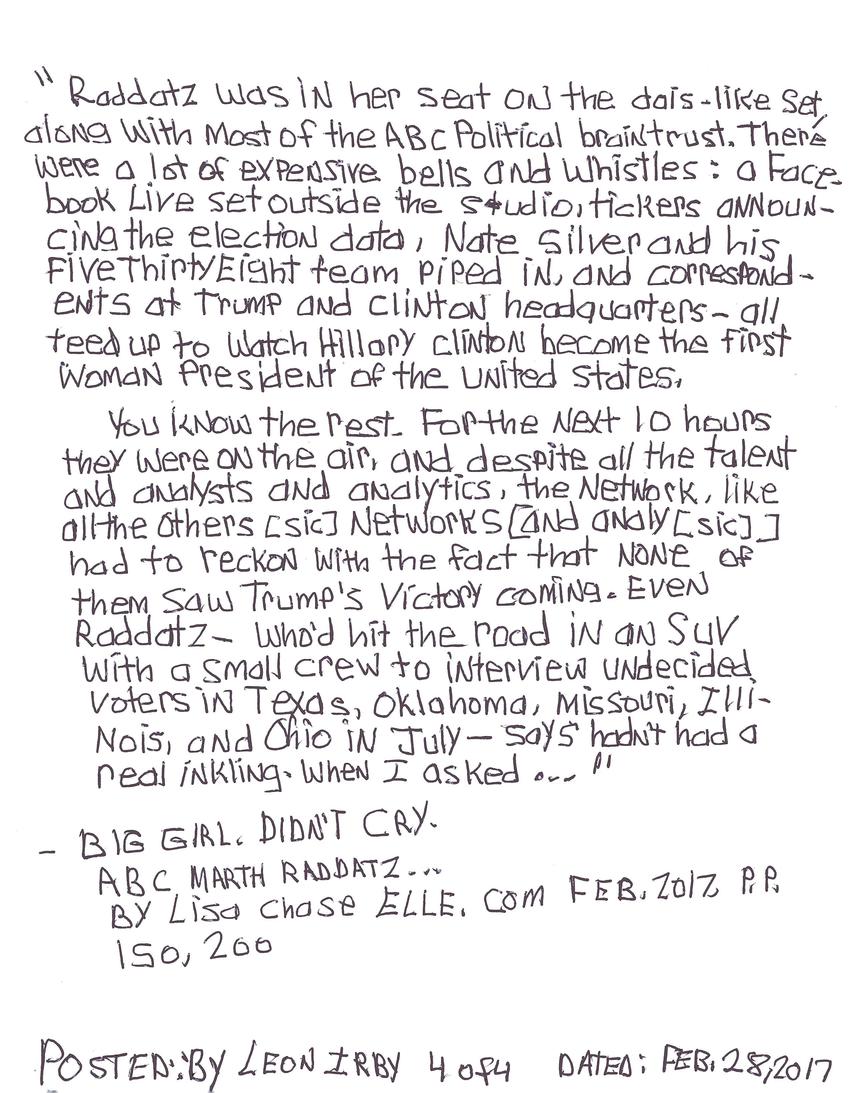 "Raddatz was in her seat on the dais-like set,
along with most of the ABC Political braintrust. There
were a lot of expensive bells and whistles: a Face-
book Live set outside the studio, tickers announ-
cing the election data, Nate Silver and his
FiveThirtyEight team piped in, and correspond-
ents at Trump and Clinton headquarters- all
teed up to watch Hillary Clinton become the first
woman President of the United States.
You know the rest. For the next 10 hours
they were on the air, and despite all the talent
and analysts and analytics, the network, like
all the others [sic] networks [and analy [sic]]
had to reckon with the fact that none of
them saw Trump's victory coming. Even
Raddatz- who'd hit the road in an SUV
with a small crew to interview undecided
voters in Texas, Oklahoma, Missouri, Illi-
nois, and Ohio in July- says hadn't had a
real inkling. When I asked ..."
- BIG GIRL. DIDN'T CRY.
ABC MARTH RADDATZ...
BY Lisa Chase ELLE. COM FEB. 2017 P.P.
150, 200
POSTED: BY LEON IRBY 4 of 4 DATED: FEB. 28, 2017